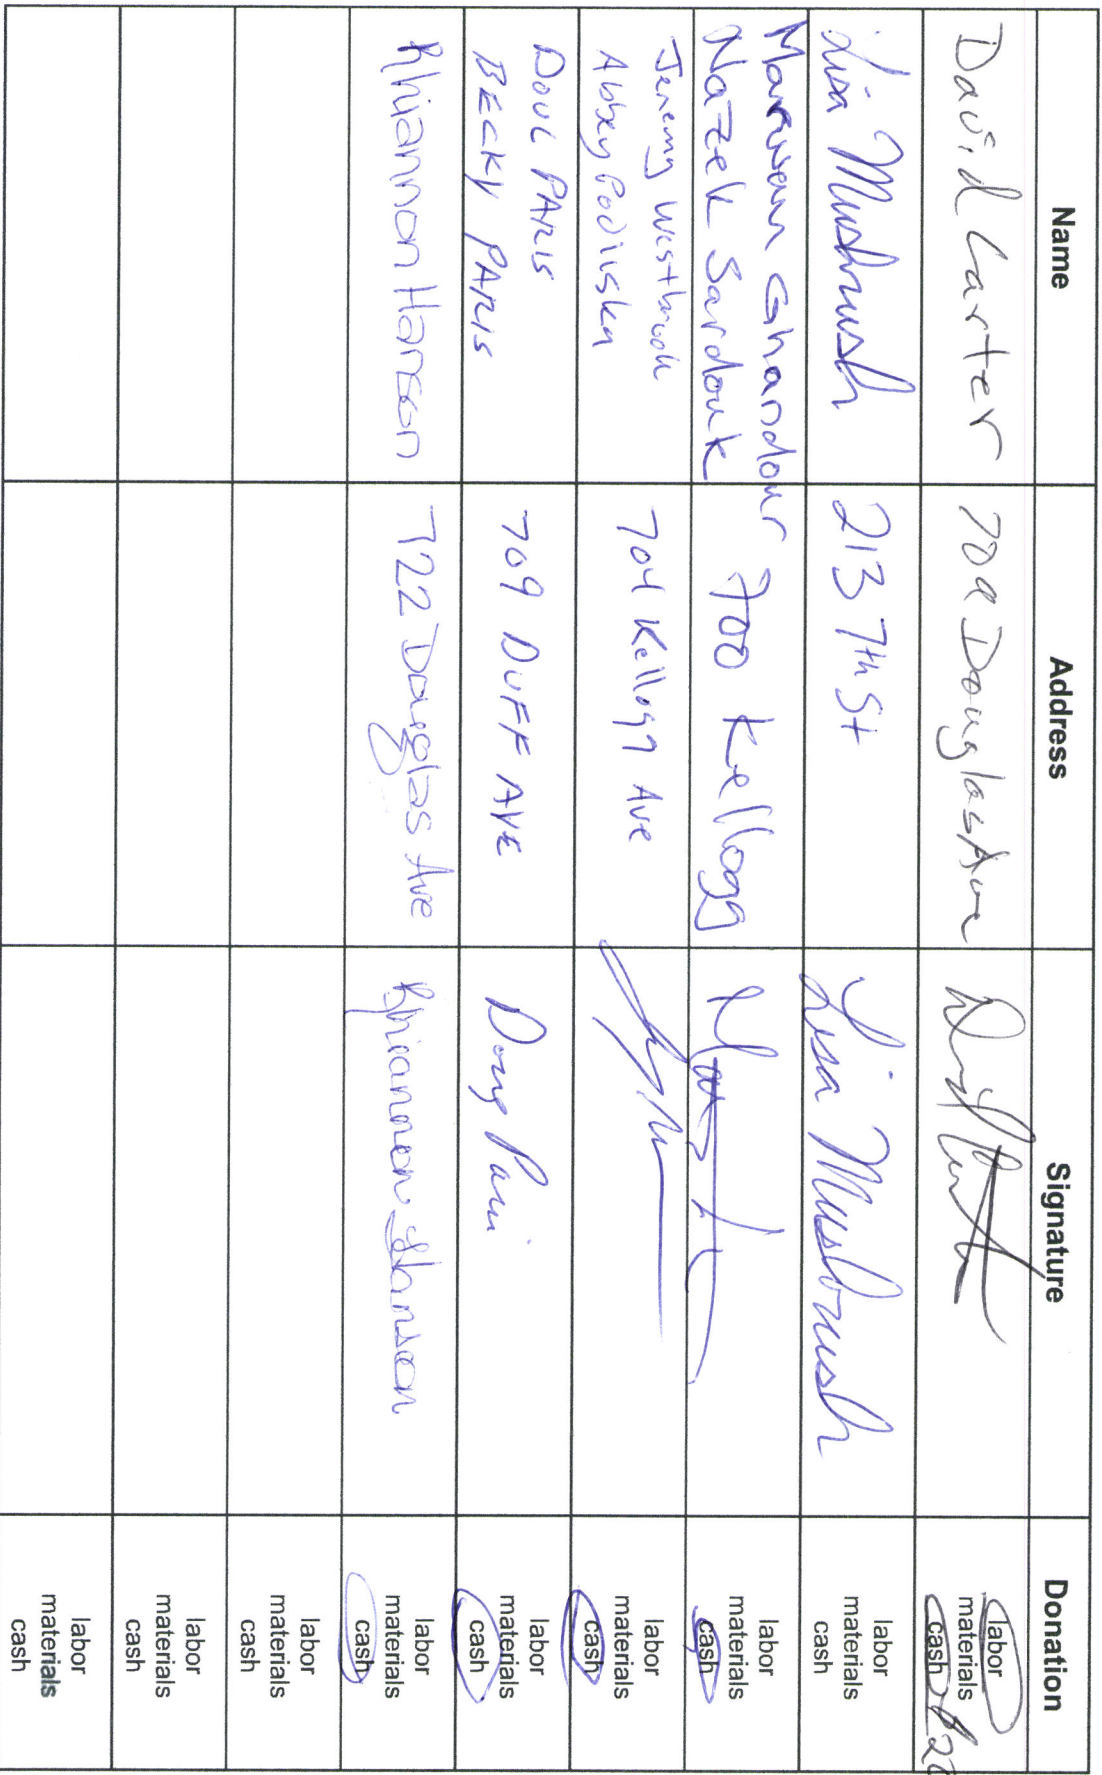 Name Address Signature Donation
David Carter 702 Douglas Ave labor
materials
cash
Lisa Mushrush 213 7th St Lisa Mushrush labor
materials
cash
Marwan Ghandour
Nazek Sardouk 700 Kellogg labor
materials
cash
Jeremy Westbrook
Abbey 704 Kellogg Ave labor
materials
cash
DOUG PARIS
BECKY PARIS 709 DUFF AVE Doug Paris labor
materials
cash
Rhiannon Hanson 722 Douglas Ave Rhiannon Hanson labor
materials
cash
labor
materials
cash
labor
materials
cash
labor
materials
cash